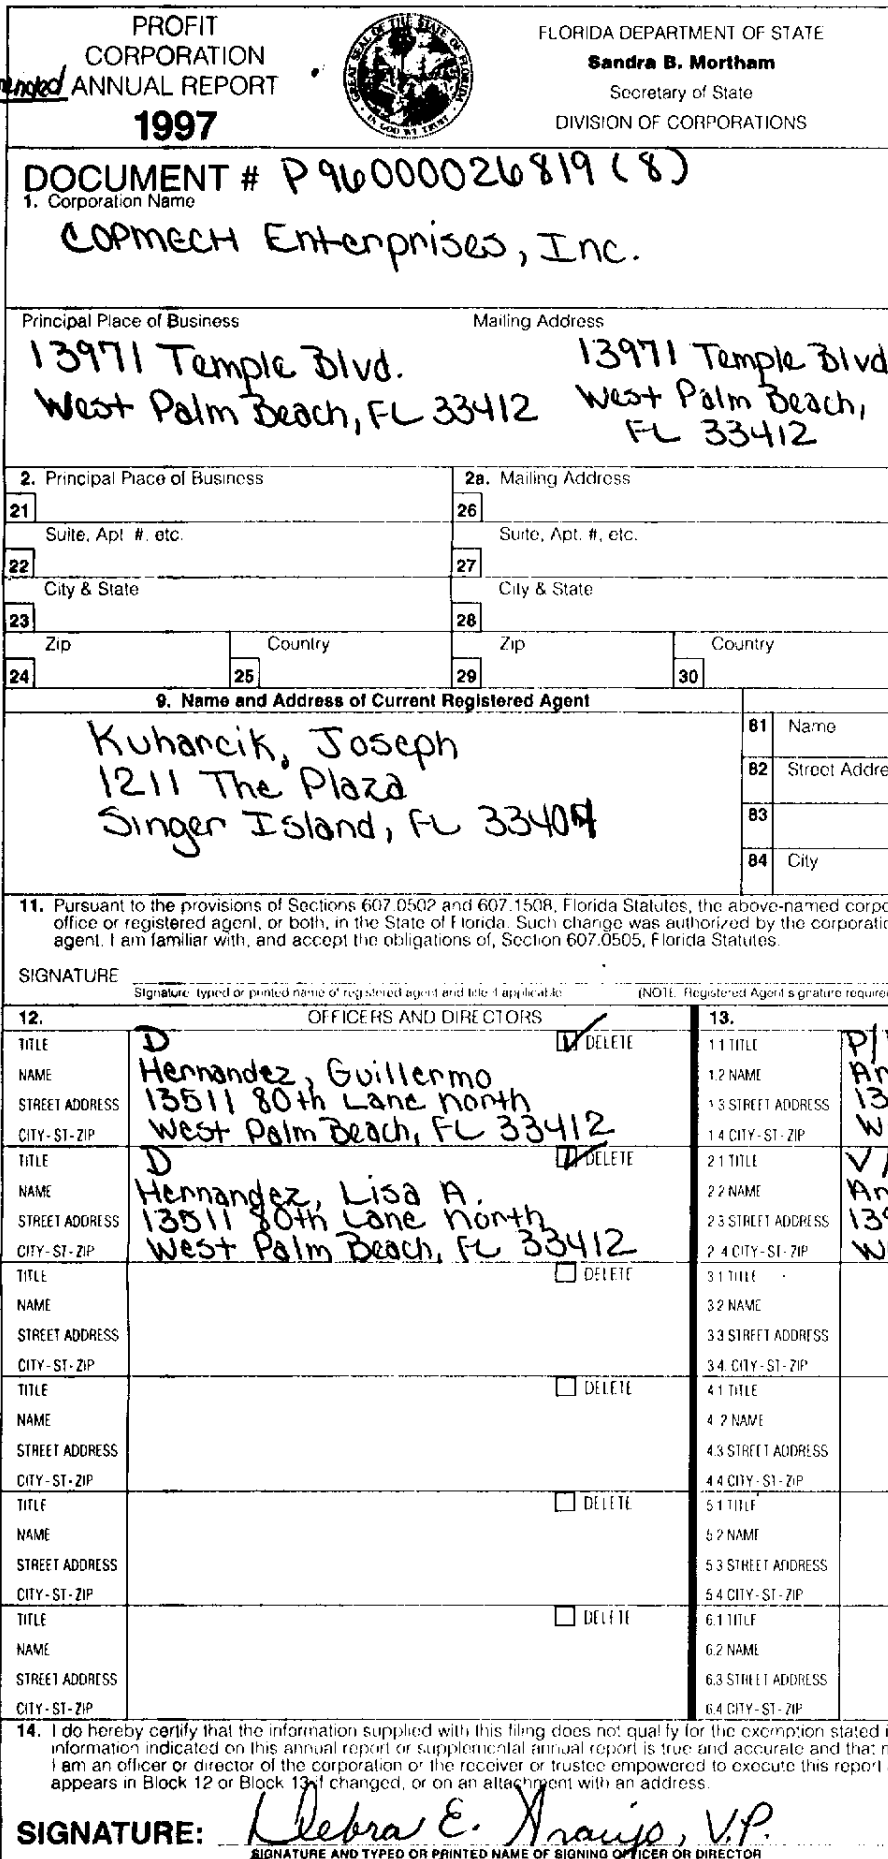 PROFIT
CORPORATION
ANNUAL REPORT
1997
GREAT SEAL OF THE STATE OF FLORIDA
IN GOD WE TRUST
FLORIDA DEPARTMENT OF STATE
Sandra B. Mortham
Secretary of State
DIVISION OF CORPORATIONS
DOCUMENT # P96000026819 (8)
1. Corporation Name
COPMECH Enterprises, Inc.
Principal Place of Business
13971 Temple Blvd.
West Palm Beach, FL 33412
Mailing Address
13971 Temple Blvd
West Palm Beach,
FL 33412
2. Principal Place of Business
21
Suite, Apt. #, etc.
22
City & State
23
Zip
24
Country
25
2a. Mailing Address
26
Suite, Apt. #, etc.
27
City & State
28
Zip
29
Country
30
9. Name and Address of Current Registered Agent
Kuharcik, Joseph
1211 The Plaza
Singer Island, FL
81 Name
82 Street Addre
83
84 City
11. Pursuant to the provisions of Sections 607.0502 and 607.1508, Florida Statutes, the above-named corpo
office or registered agent, or both, in the State of Florida. Such change was authorized by the corporatio
agent. I am familiar with, and accept the obligations of, Section 607.0505, Florida Statutes.
SIGNATURE
Signature, typed or printed name of registered agent and title if applicable
(NOTE: Registered Agent signature require
12. OFFICERS AND DIRECTORS
TITLE D DELETE
NAME Hernandez, Guillermo
STREET ADDRESS 13511 80th Lane North
CITY-ST-ZIP West Palm Beach, FL 33412
TITLE D DELETE
NAME Hernandez, Lisa A.
STREET ADDRESS 13511 80th Lane North
CITY-ST-ZIP West Palm Beach, FL 33412
TITLE DELETE
NAME
STREET ADDRESS
CITY-ST-ZIP
TITLE DELETE
NAME
STREET ADDRESS
CITY-ST-ZIP
TITLE DELETE
NAME
STREET ADDRESS
CITY-ST-ZIP
TITLE DELETE
NAME
STREET ADDRESS
CITY-ST-ZIP
13.
1.1 TITLE P/
1.2 NAME Ar
1.3 STREET ADDRESS 13
1.4 CITY-ST-ZIP W
2.1 TITLE V/
2.2 NAME Ar
2.3 STREET ADDRESS 139
2.4 CITY-ST-ZIP W
3.1 TITLE
3.2 NAME
3.3 STREET ADDRESS
3.4. CITY-ST-ZIP
4.1 TITLE
4.2 NAME
4.3 STREET ADDRESS
4.4 CITY-ST-ZIP
5.1 TITLE
5.2 NAME
5.3 STREET ADDRESS
5.4 CITY-ST-ZIP
6.1 TITLE
6.2 NAME
6.3 STREET ADDRESS
6.4 CITY-ST-ZIP
14. I do hereby certify that the information supplied with this filing does not qualify for the exemption stated i
information indicated on this annual report or supplemental annual report is true and accurate and that m
I am an officer or director of the corporation or the receiver or trustee empowered to execute this report
appears in Block 12 or Block 13 if changed, or on an attachment with an address.
SIGNATURE: Debra E. Araujo, V.P.
SIGNATURE AND TYPED OR PRINTED NAME OF SIGNING OFFICER OR DIRECTOR